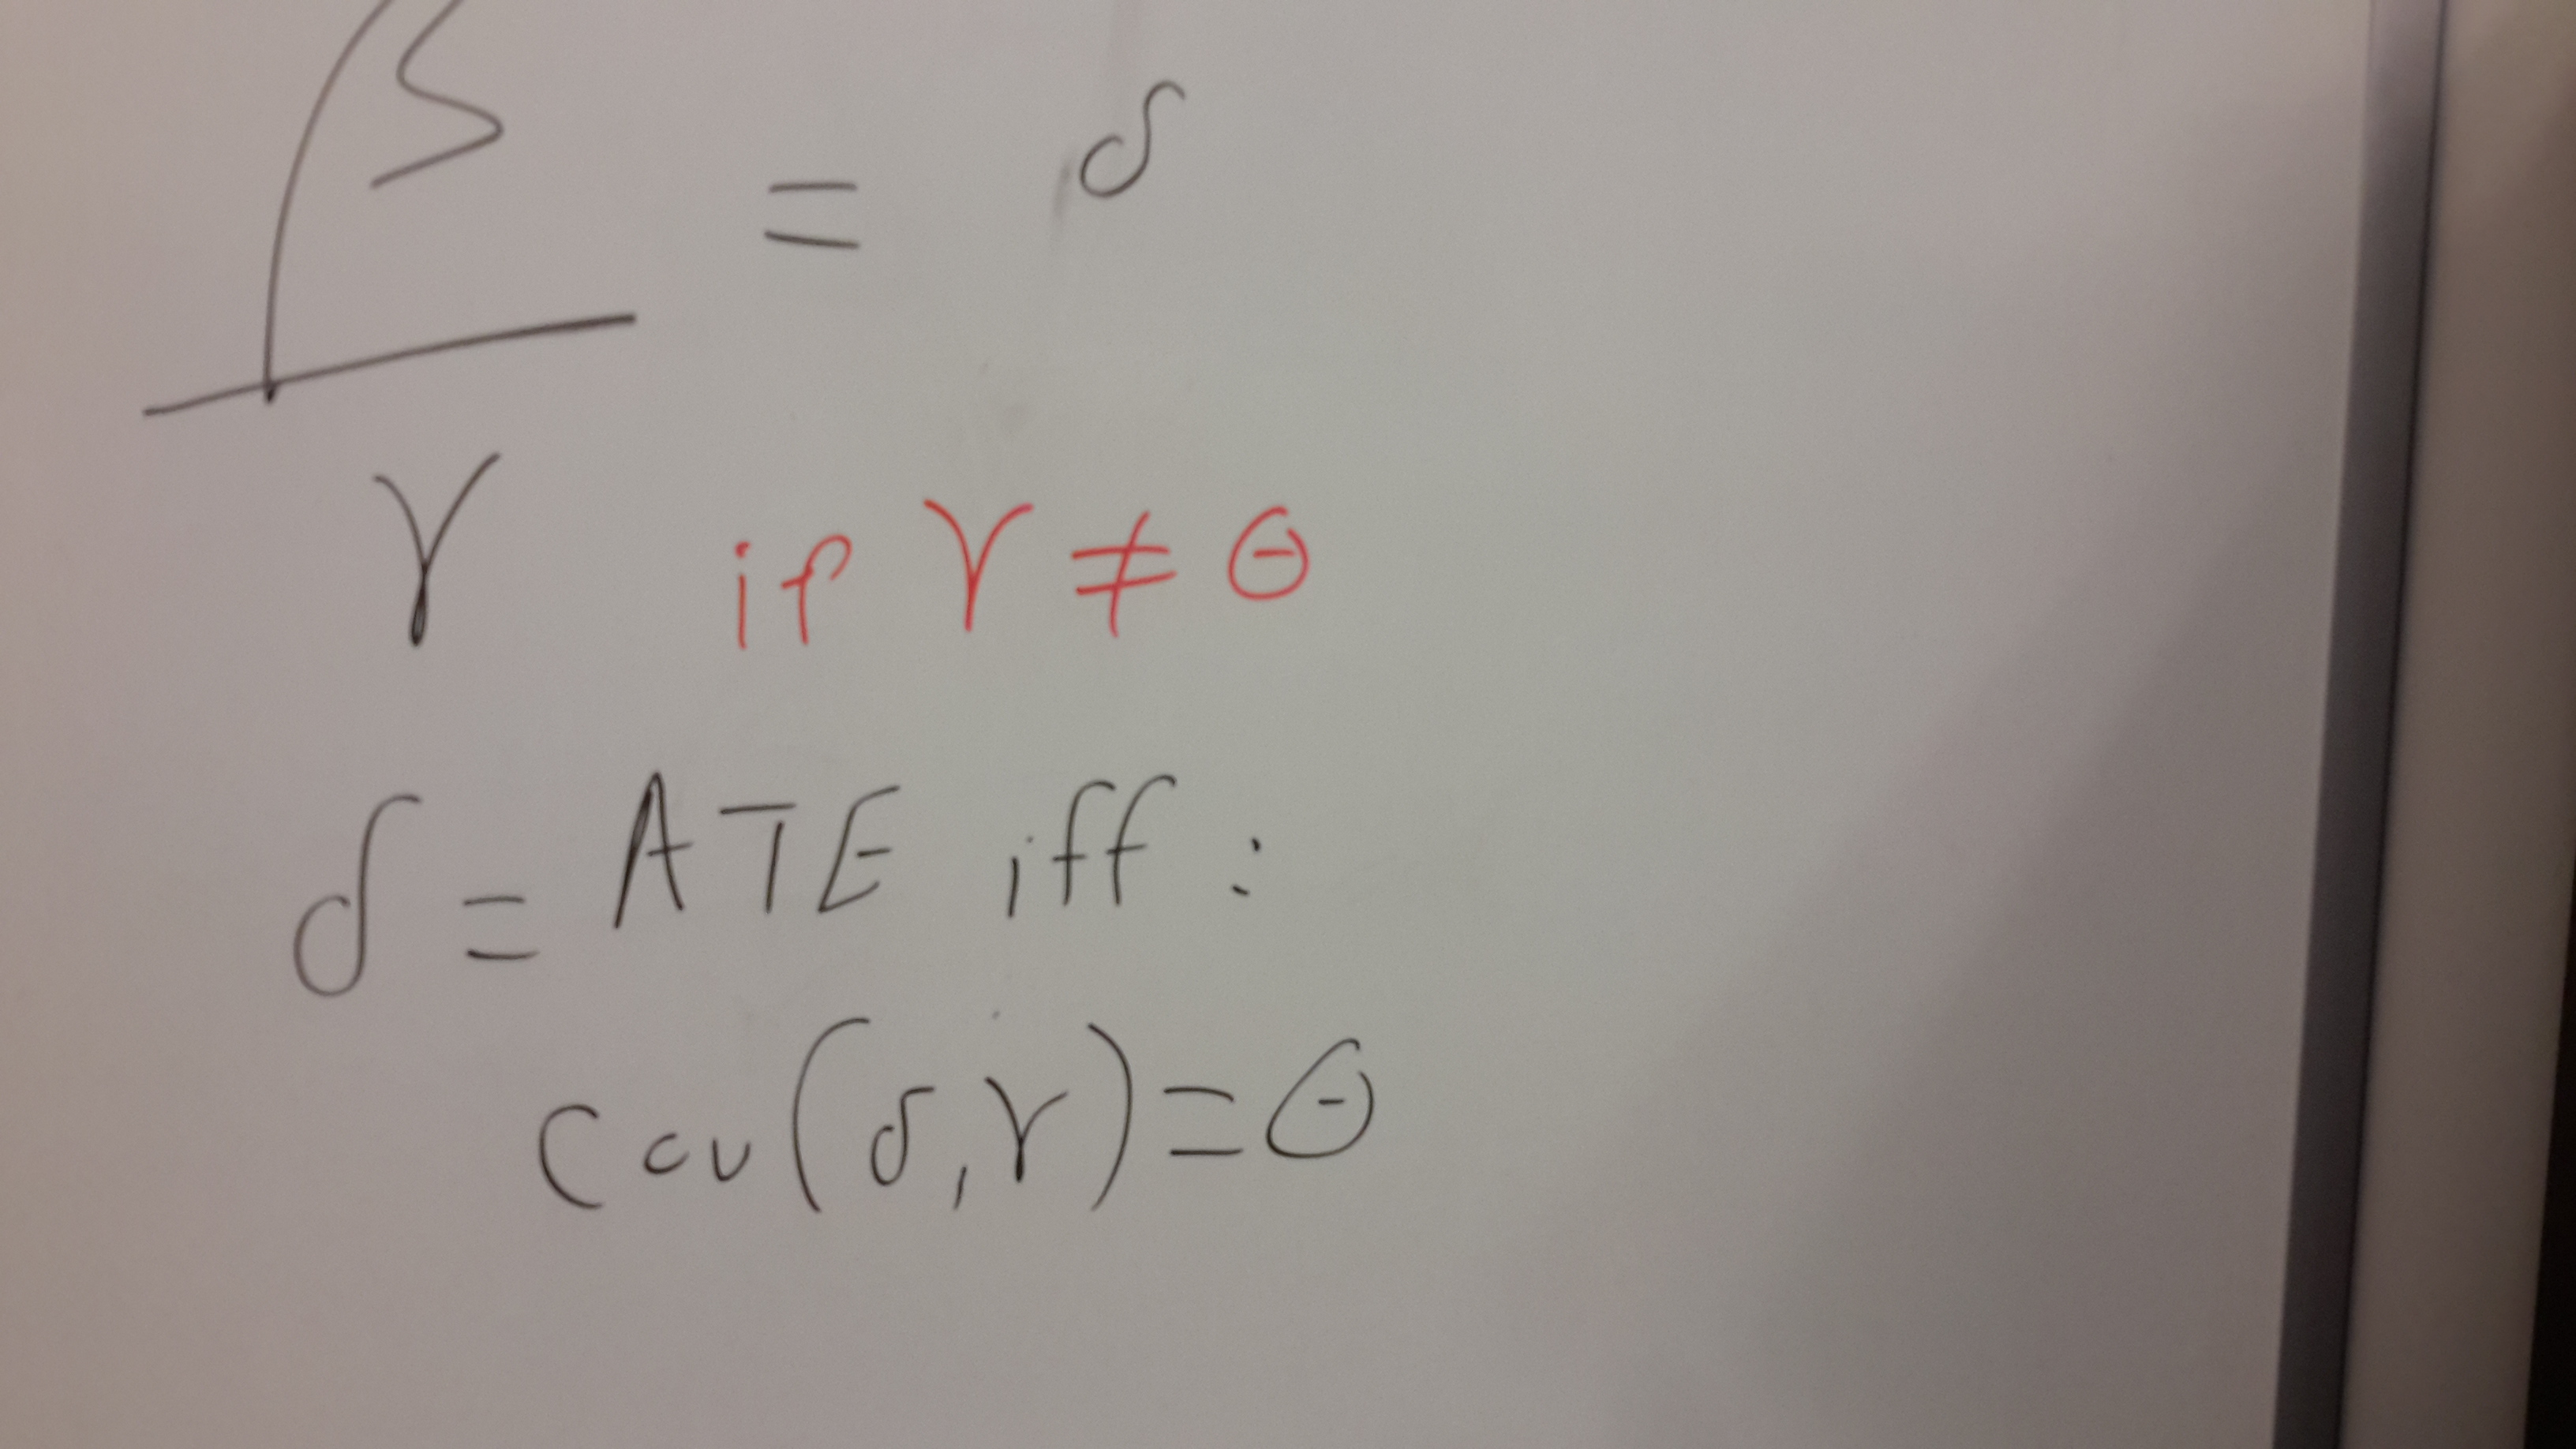 β = δ
γ if γ ≠ θ
δ = ATE iff :
Cov(δ,γ)=θ